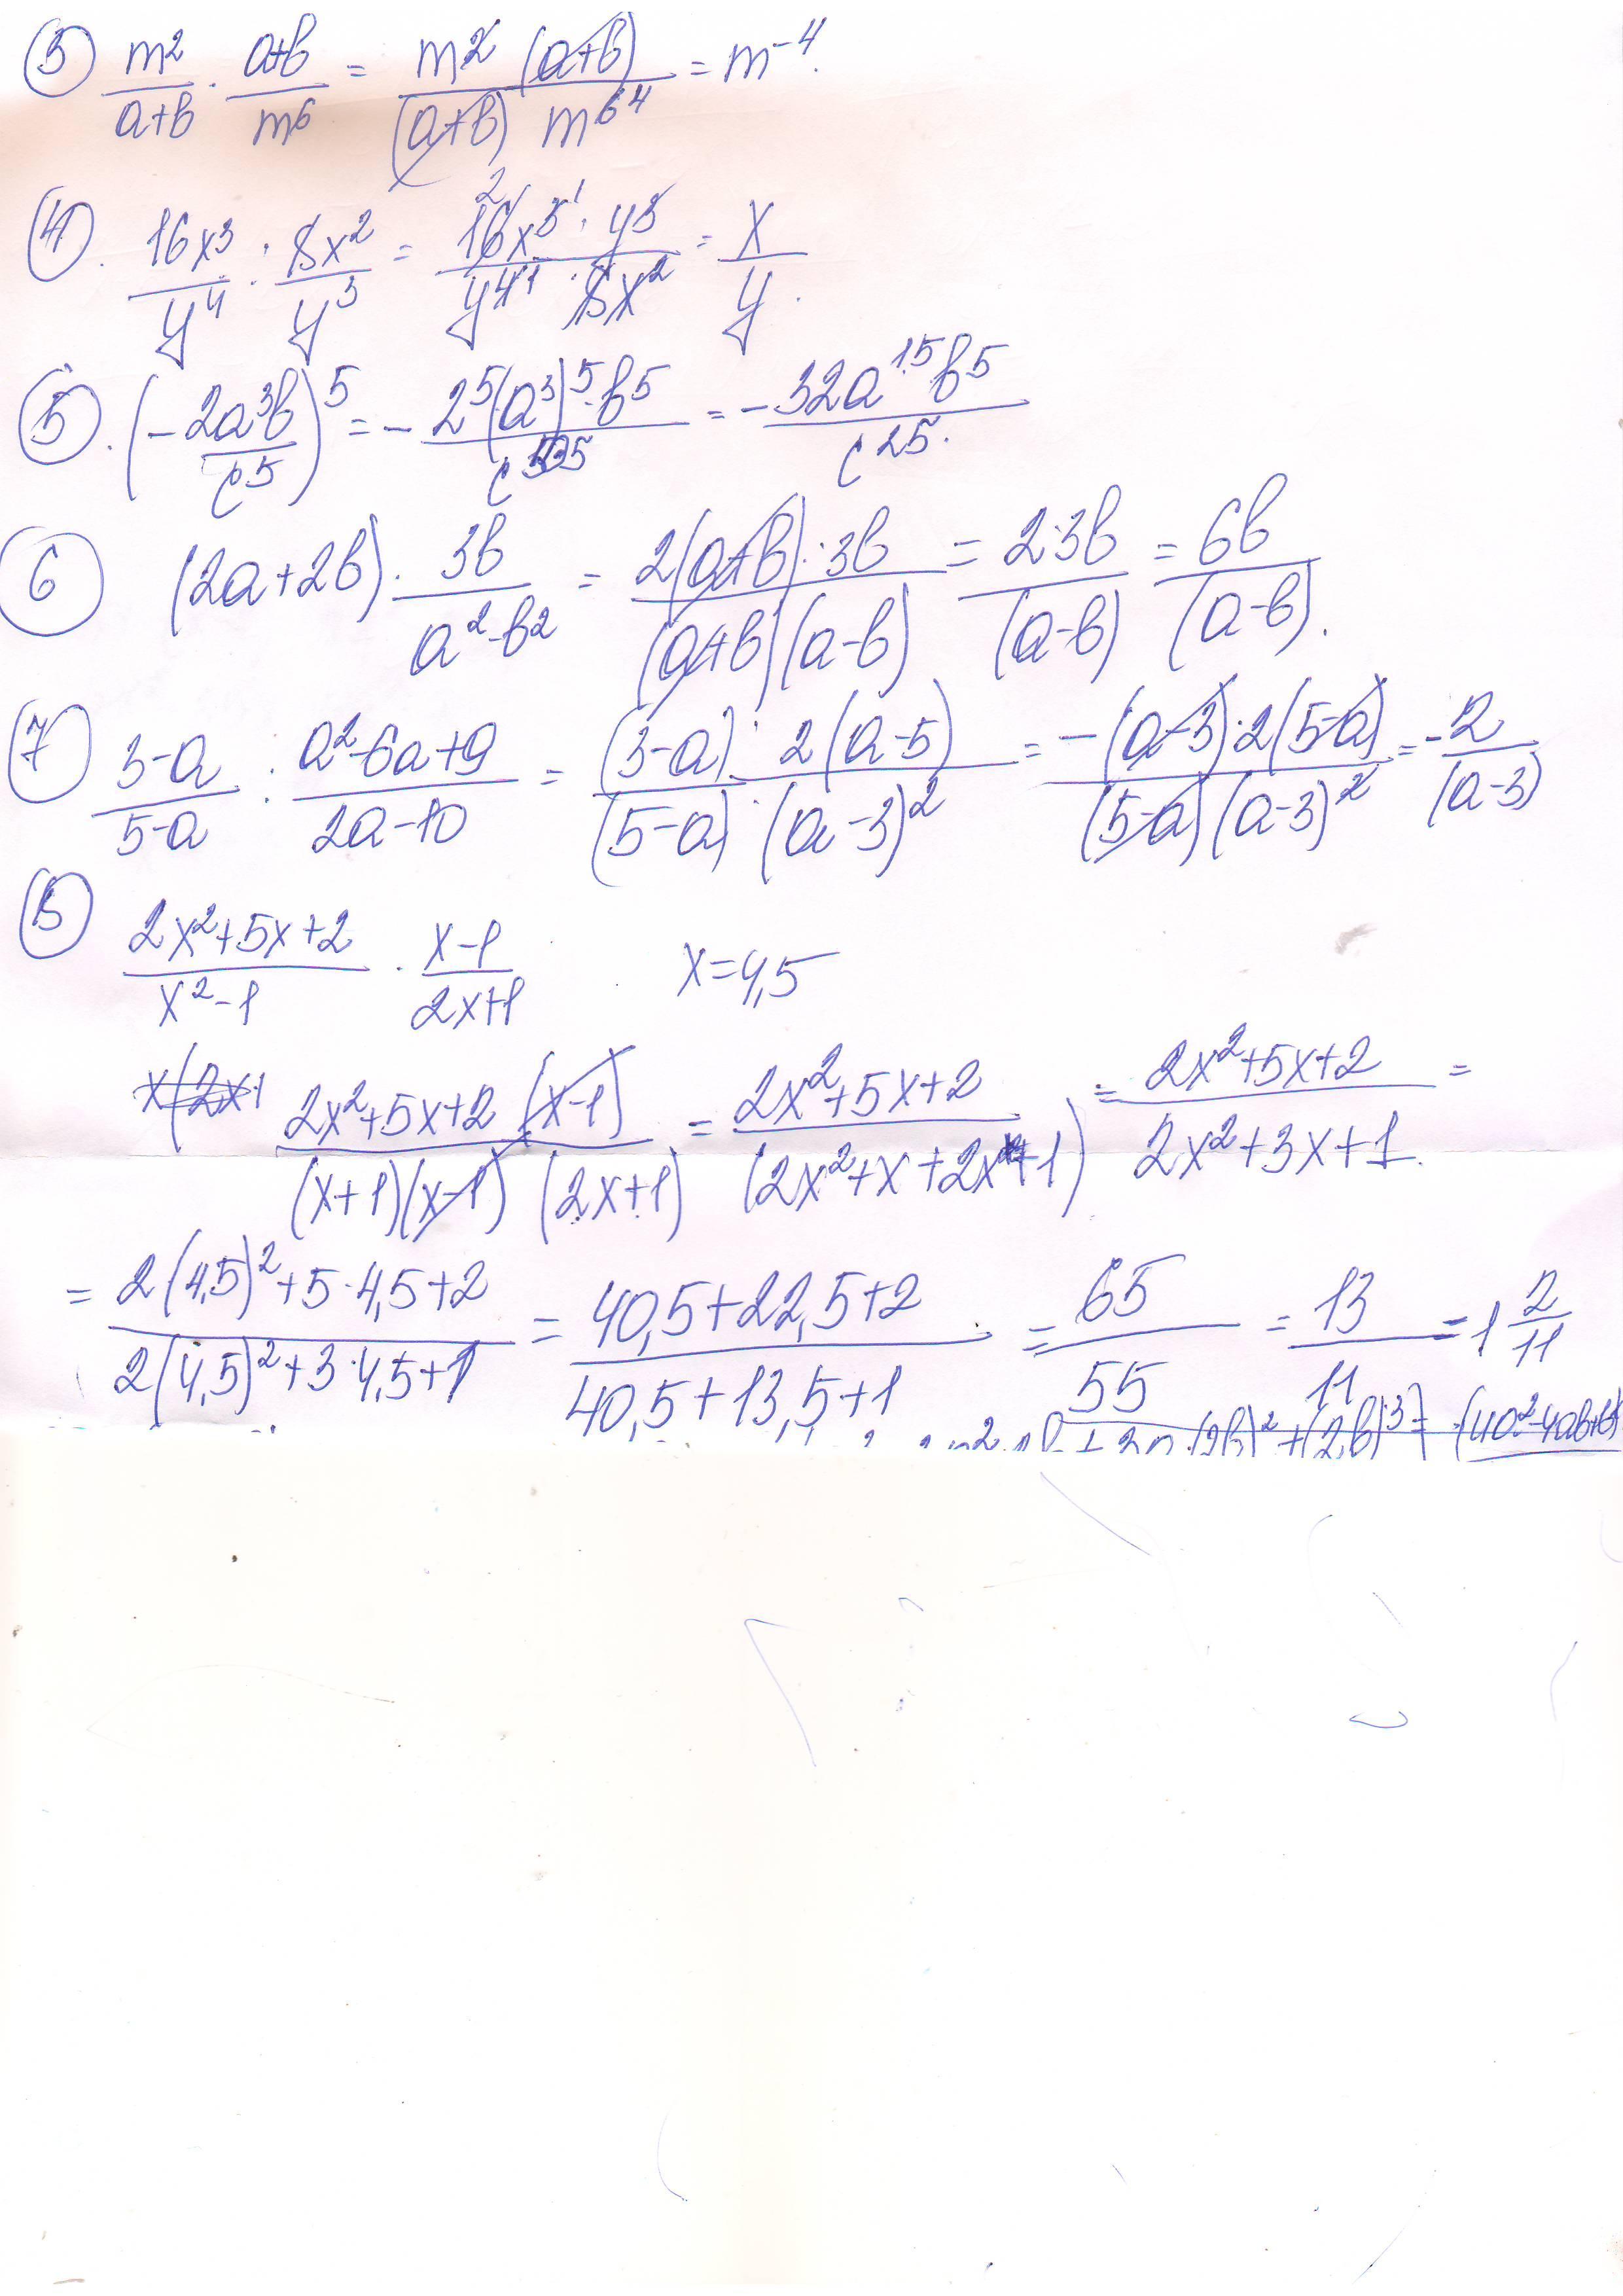 ③ m²/(a+b) · (a+b)/m⁶ = m²(a+b)/((a+b) m⁶ ⁴) = m⁻⁴.
④. 16x³/y⁴ : 8x²/y³ = ²16x³ ¹ · y³/(y⁴ ¹ · 8x²) = x/y.
⑤. (-2a³b/c⁵)⁵ = -2⁵(a³)⁵·b⁵/c = -32a¹⁵b⁵/c²⁵.
⑥ (2a+2b) · 3b/(a²-b²) = 2(a+b)·3b/((a+b)(a-b)) = 2·3b/(a-b) = 6b/(a-b).
⑦ (3-a)/(5-a) : (a²-6a+9)/(2a-10) = (3-a)·2(a-5)/((5-a)·(a-3)²) = -(a-3)·2(5-a)/((5-a)(a-3)²) = -2/(a-3)
⑧ (2x²+5x+2)/(x²-1) · (x-1)/(2x+1) x=4,5
x(2x+1 2x²+5x+2 (x-1)/((x+1)(x-1)(2x+1)) = 2x²+5x+2/(2x²+x+2x+1) = 2x²+5x+2/2x²+3x+1. =
= 2(4,5)²+5·4,5+2/2(4,5)²+3·4,5+1 = 40,5+22,5+2/40,5+13,5+1 = 65/55 = 13/11 = 1 2/11
(2b)²+(2b)³) = (4a²-4ab+b²